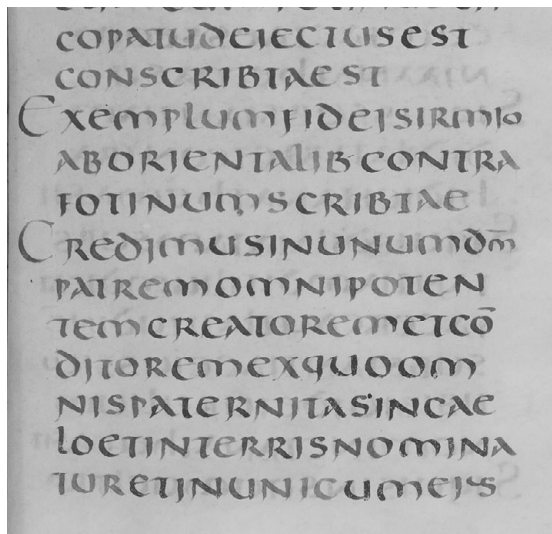 COPATUDEIECTUSEST
CONSCRIBTAEST
EXEMPLUMFIDEISIRMIO
ABORIENTALIBCONTRA
FOTINUMSCRIBTAE
CREDIMUSINUNUMDM̅
PATREMOMNIPOTEN
TEMCREATOREMETCŌ
DITOREMEXQUOOM
NISPATERNITASINCAE
LOETINTERRISNOMINA
TURETINUNICUMEIS